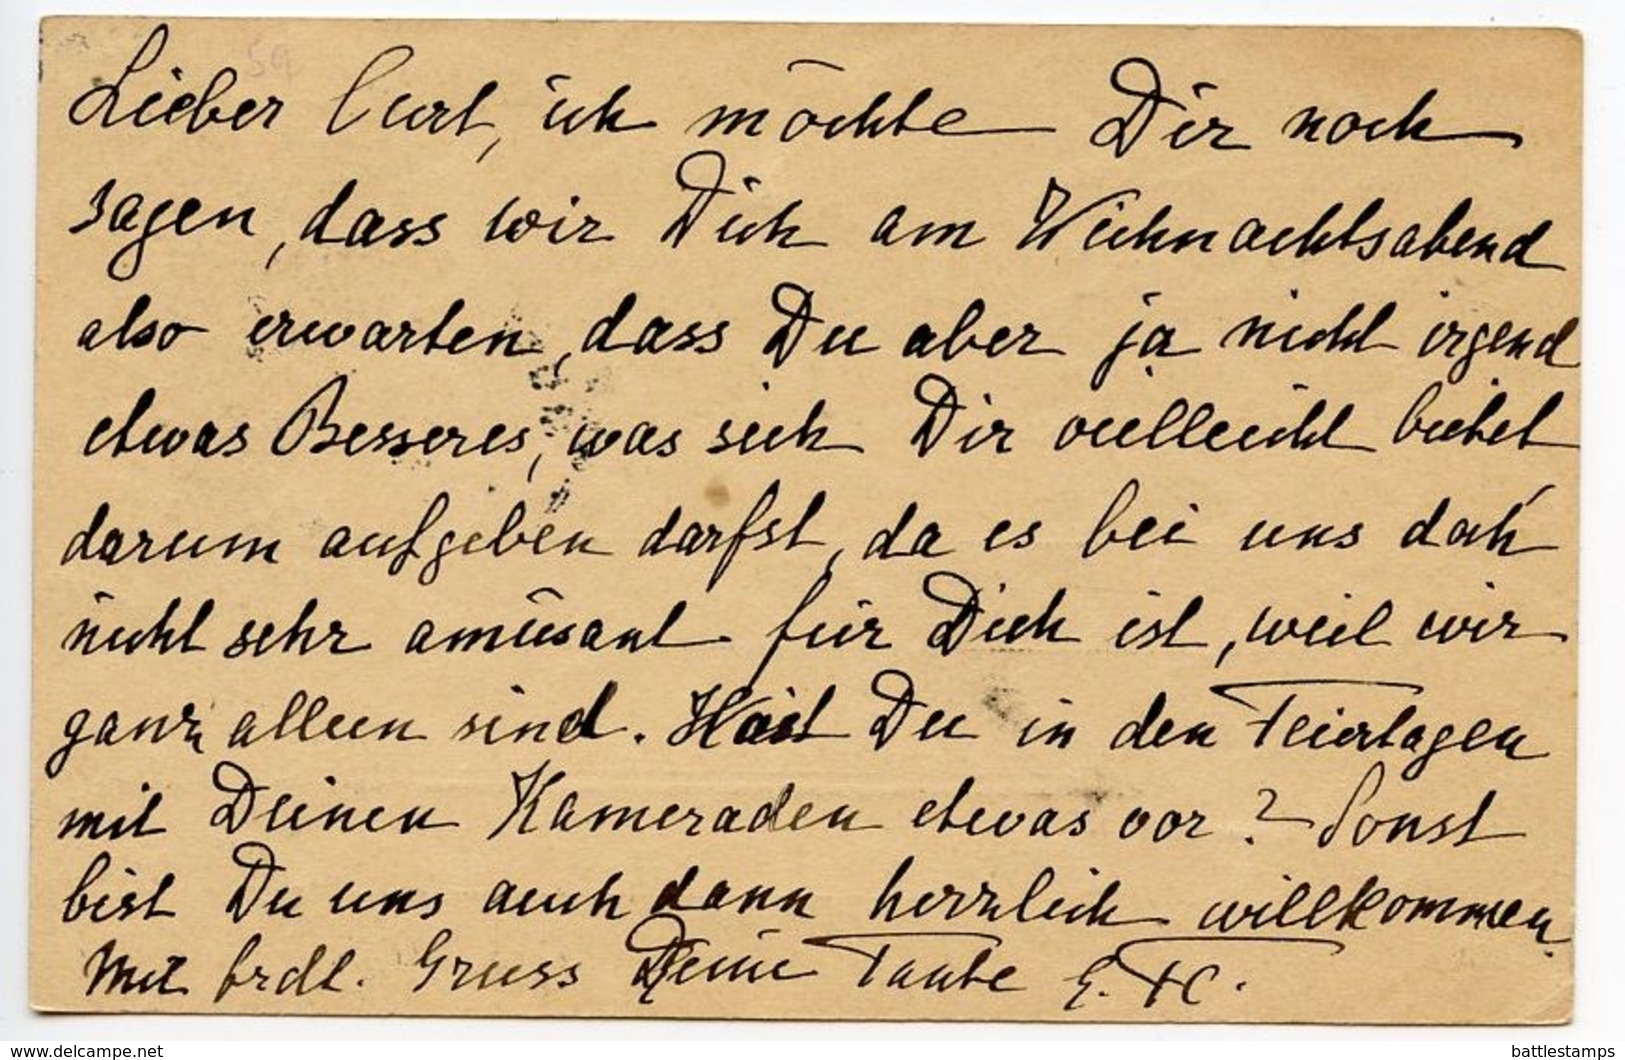 Lieber Curt, ich möchte Dir noch
sagen, dass wir Dich am Weihnachtsabend
also erwarten, dass Du aber ja nicht irgend
etwas Besseres, was sich Dir vielleicht bietet
darum aufgeben darfst, da es bei uns doch
nicht sehr amüsant für Dich ist, weil wir
ganz allein sind. Hast Du in den Feiertagen
mit Deinen Kameraden etwas vor? Sonst
bist Du uns auch dann herzlich willkommen.
Mit frdl. Gruss Deine Tante E.
www.delcampe.net
battlestamps